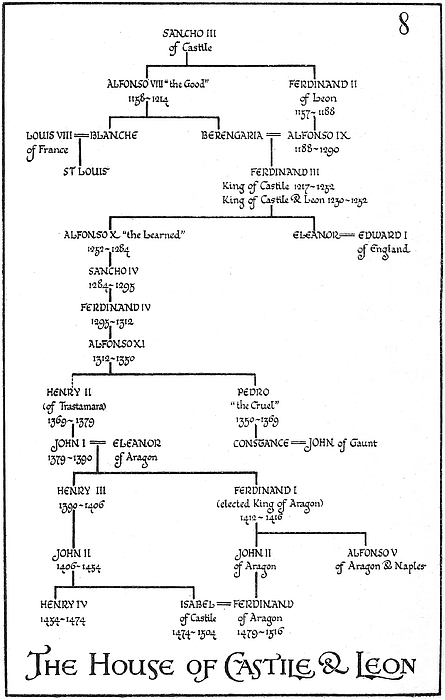 8
SANCHO III
of Castile
ALFONSO VIII "the Good"
1158~1214
FERDINAND II
of Leon
1157~1188
LOUIS VIII = BLANCHE
of France
BERENGARIA = ALFONSO IX
1188~1290
ST LOUIS
FERDINAND III
King of Castile 1217~1252
King of Castile & Leon 1230~1252
ALFONSO X "the Learned"
1252~1284
ELEANOR = EDWARD I
of England
SANCHO IV
1284~1295
FERDINAND IV
1295~1312
ALFONSO XI
1312~1350
HENRY II
(of Trastamara)
1369~1379
PEDRO
"the Cruel"
1350~1369
JOHN I = ELEANOR
1379~1390
of Aragon
CONSTANCE = JOHN of Gaunt
HENRY III
1390~1406
FERDINAND I
(elected King of Aragon)
1412~1416
JOHN II
1406~1454
JOHN II
of Aragon
ALFONSO V
of Aragon & Naples
HENRY IV
1454~1474
ISABEL = FERDINAND
of Castile
1474~1504
of Aragon
1479~1516
THE HOUSE OF CASTILE & LEON